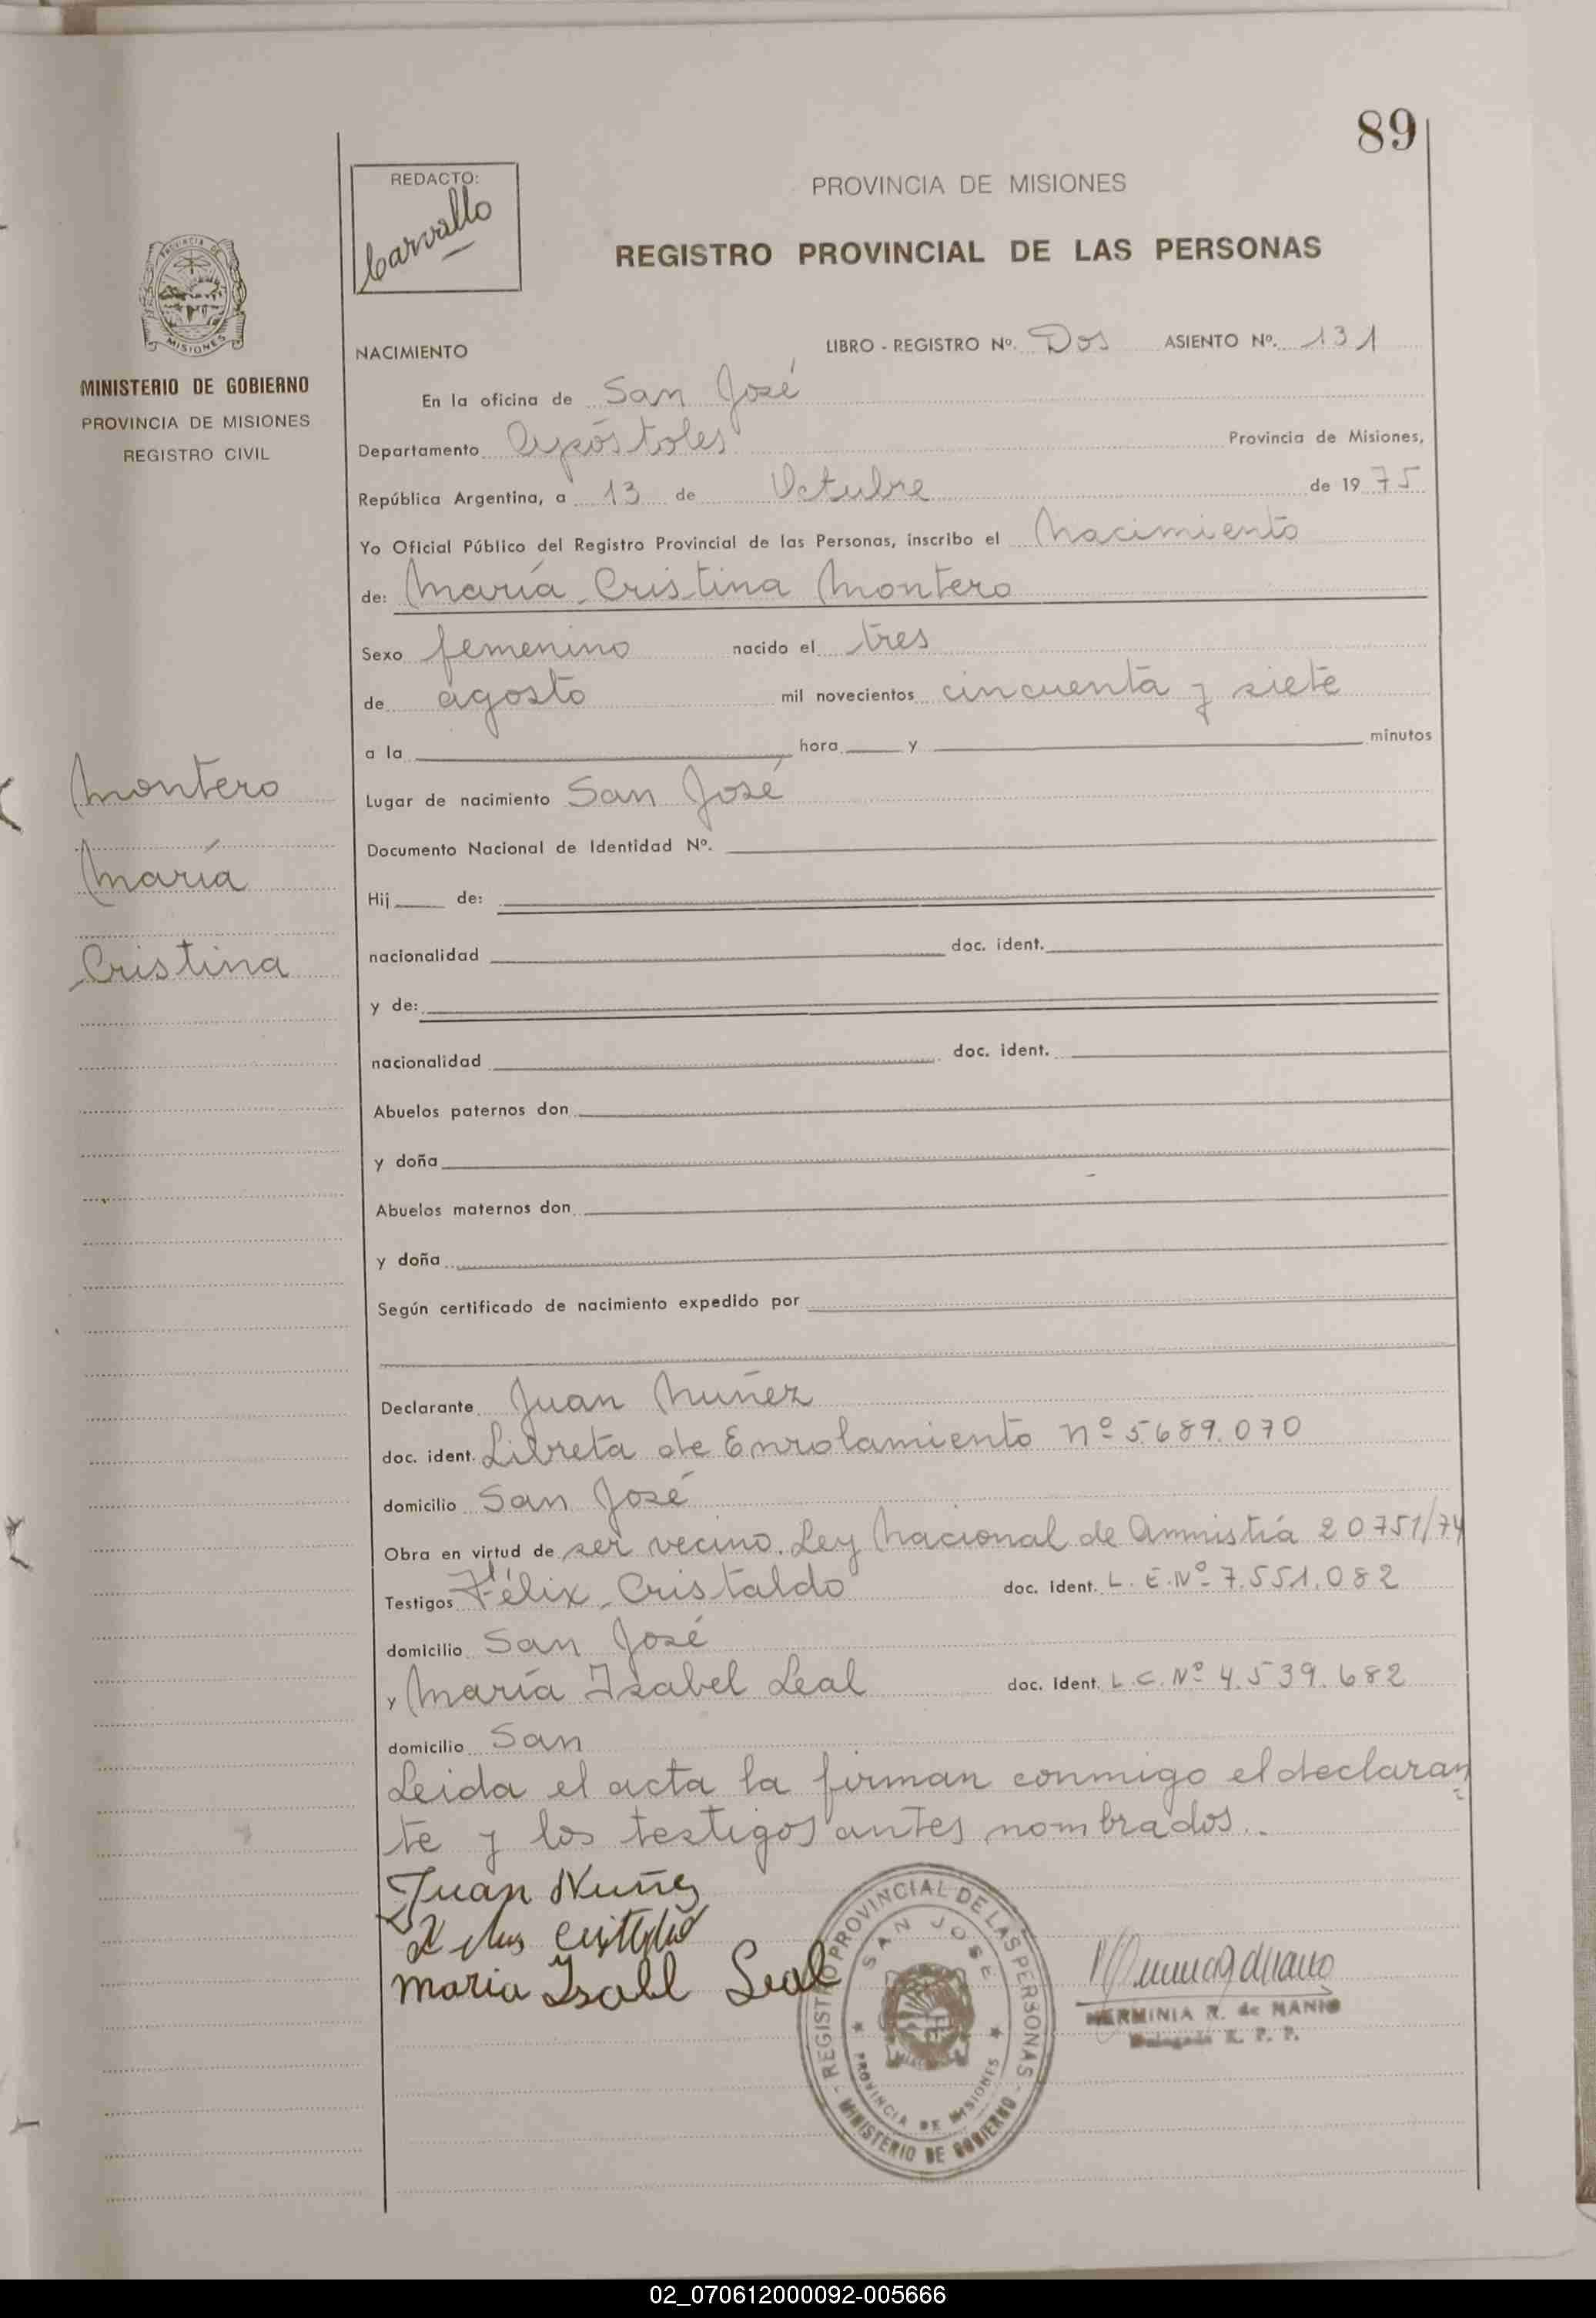 89
REDACTO:
Carvallo
PROVINCIA DE MISIONES
REGISTRO PROVINCIAL DE LAS PERSONAS
PROVINCIA DE
MISIONES
MINISTERIO DE GOBIERNO
PROVINCIA DE MISIONES
REGISTRO CIVIL
NACIMIENTO
LIBRO - REGISTRO Nº. Dos ASIENTO Nº. 131
En la oficina de San José
Departamento Apóstoles Provincia de Misiones,
República Argentina, a 13 de Octubre de 1975
Yo Oficial Público del Registro Provincial de las Personas, inscribo el Nacimiento
de: María Cristina Montero
Sexo femenino nacido el tres
de agosto mil novecientos cincuenta y siete
a la hora y minutos
Montero
María
Cristina
Lugar de nacimiento San José
Documento Nacional de Identidad Nº.
Hij de:
nacionalidad doc. ident.
y de:
nacionalidad doc. ident.
Abuelos paternos don
y doña
Abuelos maternos don
y doña
Según certificado de nacimiento expedido por
Declarante Juan Nuñez
doc. ident. Libreta de Enrolamiento nº 5.689.070
domicilio San José
Obra en virtud de ser vecino. Ley Nacional de Amnistía 20751/74
Testigos Félix Cristaldo doc. Ident. L. E. Nº 7.551.082
domicilio San José
y María Isabel Leal doc. Ident. L.C. Nº 4.539.682
domicilio San
Leida el acta la firman conmigo el declaran
te y los testigos antes nombrados.
Juan Nuñez
Maria Isabl Leal
REGISTRO PROVINCIAL DE LAS PERSONAS
SAN JOSE
PROVINCIA DE MISIONES
MINISTERIO DE GOBIERNO
HERMINIA R. de
Delegada R. P. P.
02_070612000092-005666